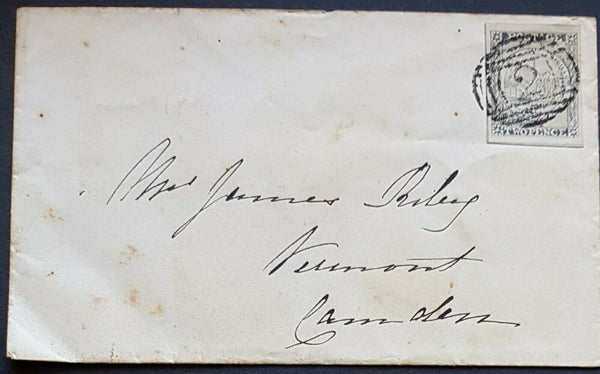 POSTAGE
TWO PENCE
Mrs James Riley
Vermont
Camden